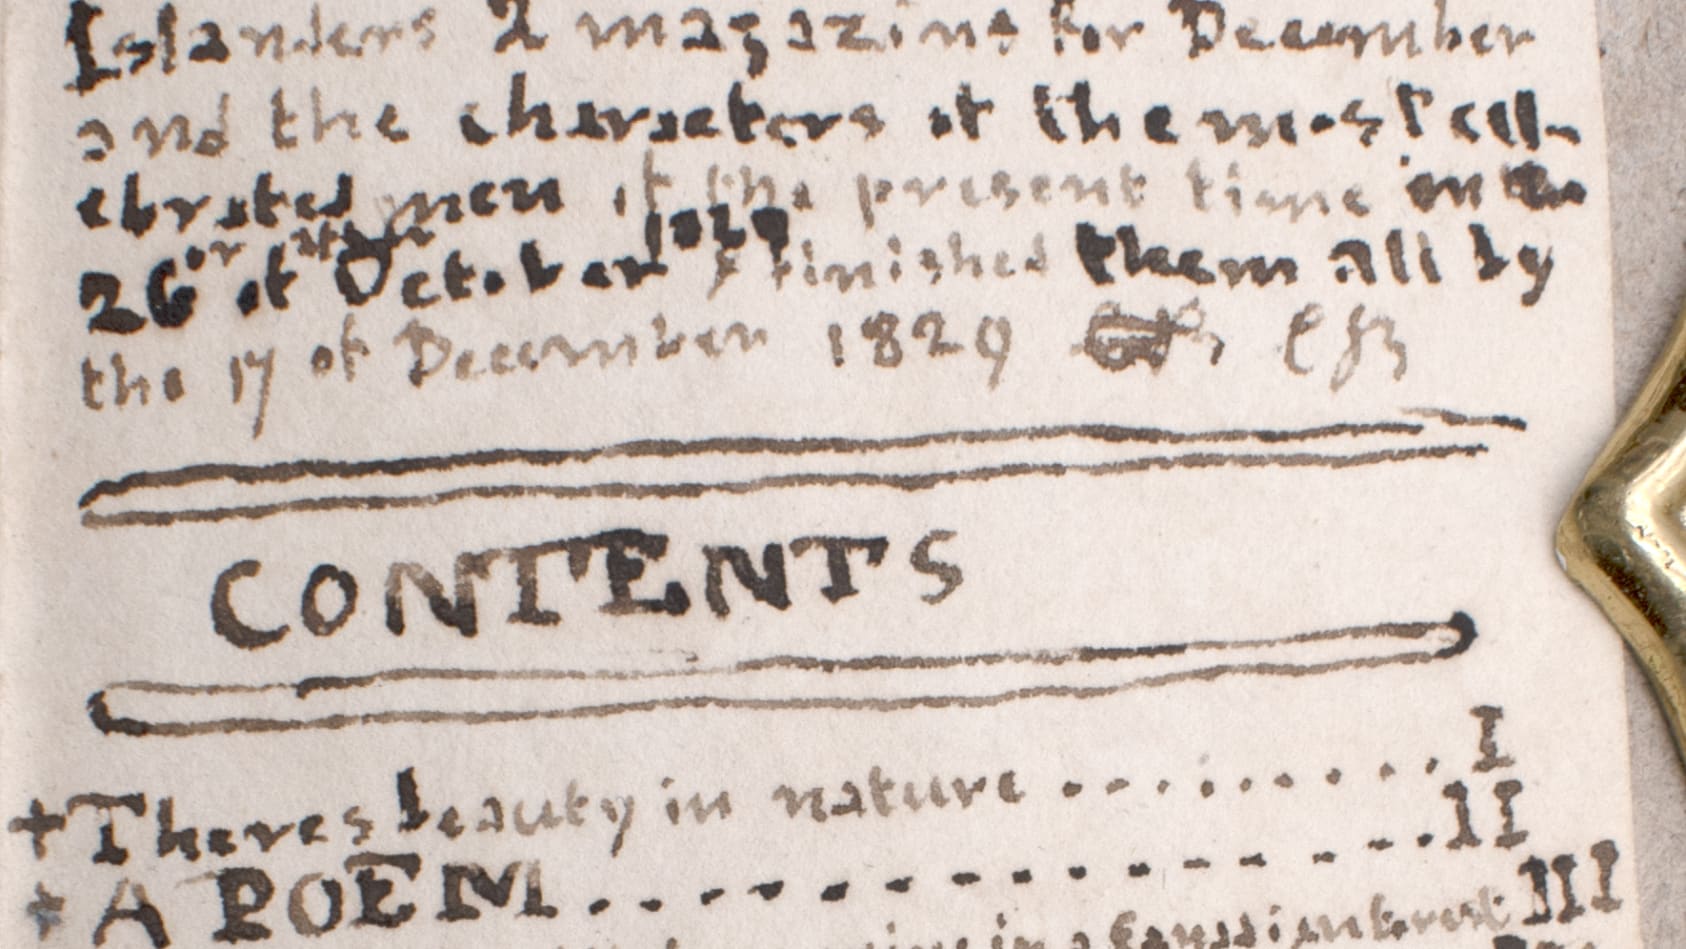 Islanders 2 magazine for December
and the characters of the most cel-
ebrated men of the present time in the
or after
26 of October 1829 & finished them all by
the 17 of December 1829
CONTENTS
+Theres beauty in nature .......... I
+ A POEM .............. II
in a III